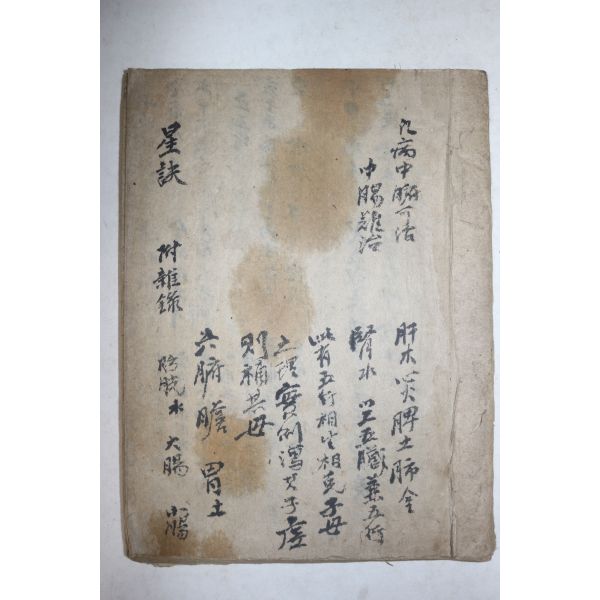 凡病中腑可活
中腸難治
肝木心火脾土肺金
腎水 以上五臟兼五行
皆有五行相生相克子母
之理實則瀉其子虛
則補其母
六腑膽 胃土
膀胱水 大腸 小腸
星訣 附雜錄